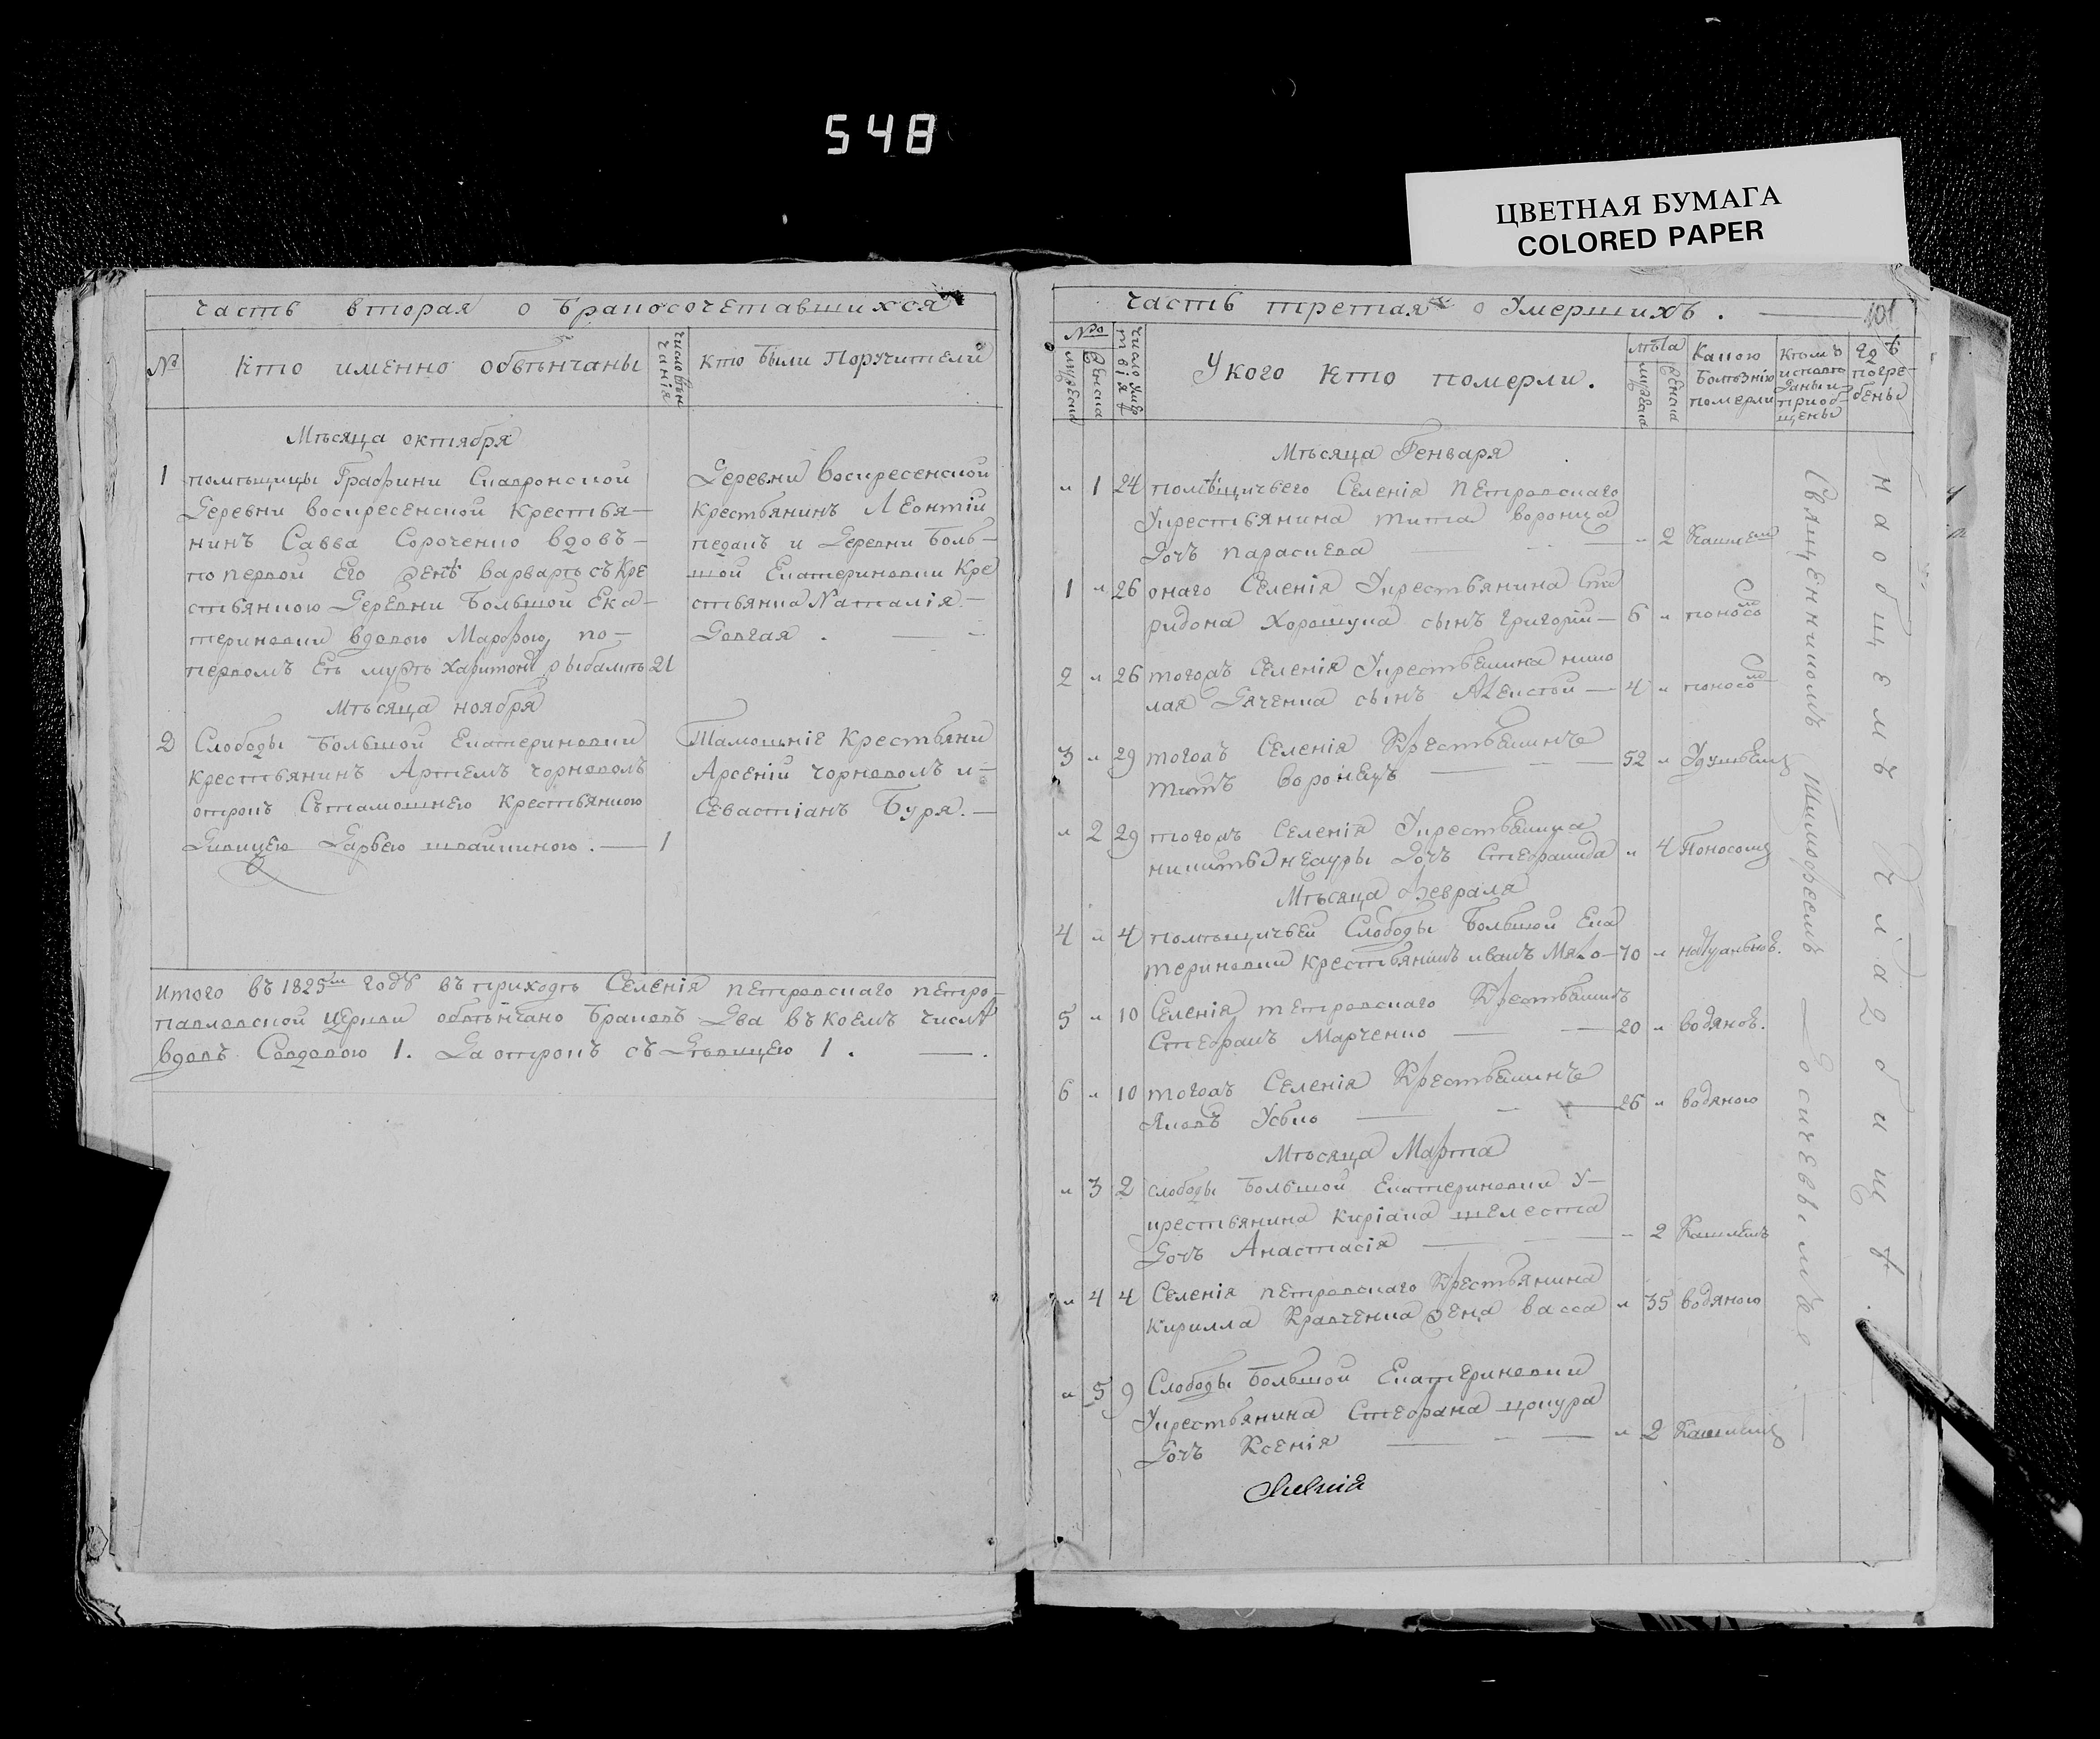 548
ЦВЕТНАЯ БУМАГА
COLORED PAPER
часть вторая о бракосочетавшихся
№
кто именно обвѣнчаны
число вѣн
чанія
кто были поручители
Мѣсяца октября
1 помѣщицы Графини Скавронской
Деревни воскресенской крестья–
нинъ Савва Сороченко вдовъ–
по первой его женѣ варварѣ съ кре
стьянкою Деревни Большой Ека–
териновки вдовою Марфою по–
первомъ Еѣ мужѣ харитонѣ рыбалкѣ 21
Деревни воскресенской
крестьянинъ Леонтій
педанъ и Деревни Боль–
шой Екатериновки кре
стьянка Наталія.–
Довгая .
Мѣсяца ноября
2 Слободы Большой Екатериновки
крестьянинъ Артемъ чорноволъ
отрокъ Съ тамошнею крестьянкою
Дѣвицею Дарьею швайкиною . 1
Тамошніе крестьяни
Арсеній чорноволъ и–
Севастіанъ Буря.–
Итого въ 1825мъ году въ приходѣ Селенія петровскаго петро–
павловской церкви обвѣнчано браковъ два въ коемъ числѣ
вдовъ Совдовою 1. Да отрокъ съ Дѣвицею 1 .
часть третая о умершихъ . 101
№о
мужеска
женска
число уме
ртвія
У кого кто померли.
лѣта
мужеска
женска
какою
болѣзнію
померли
кѣмъ
исповѣ
даны и
приоб–
щены
гдѣ
погре–
бены
Мѣсяца Генваря
" 1 24 помѣщичьего Селенія петровскаго
крестьянина тита воронца
дочъ параскева " 2 кашлем
1 " 26 онаго Селенія крестьянина Спи
ридона Хорошуна сынъ григорій– 6 " поносомъ
2 " 26 тогожъ Селенія крестьянина нико
лая Дяченка сынъ Алексѣй 4 " поносомъ
3 " 29 тогожъ Селенія крестьянинъ
титъ воронецъ 52 " Удушьемъ
" 2 29 тогожъ Селенія крестьянина
дочъ Стефанида " 4 Поносомъ
Мѣсяца Февраля
4 " 4 помѣщичьей Слободы Большой Ека
териновки крестьянинъ иванъ 70 "
5 " 10 Селенія петровскаго крестьянинъ
Стефанъ Марченко 20 " водянов.
6 " 10 тогожъ Селенія крестьянинъ
Яковъ Усѣко 26 " водяною
Мѣсяца Марта
" 3 2 слободы Большой Екатериновки
крестьянина киріака шелеста
дочъ Анастасія – 2 кашлемъ
" 4 4 Селенія петровскаго крестьянина
кирилла кравченка жена васса " 35 водяною
" 5 9 Слободы Большой Екатериновки
крестьянина Стефана цоцура
дочъ Ксенія " 2 кашлемъ
Священникомъ Тимофеемъ Досичевымъ
на общемъ кладбищѣ.